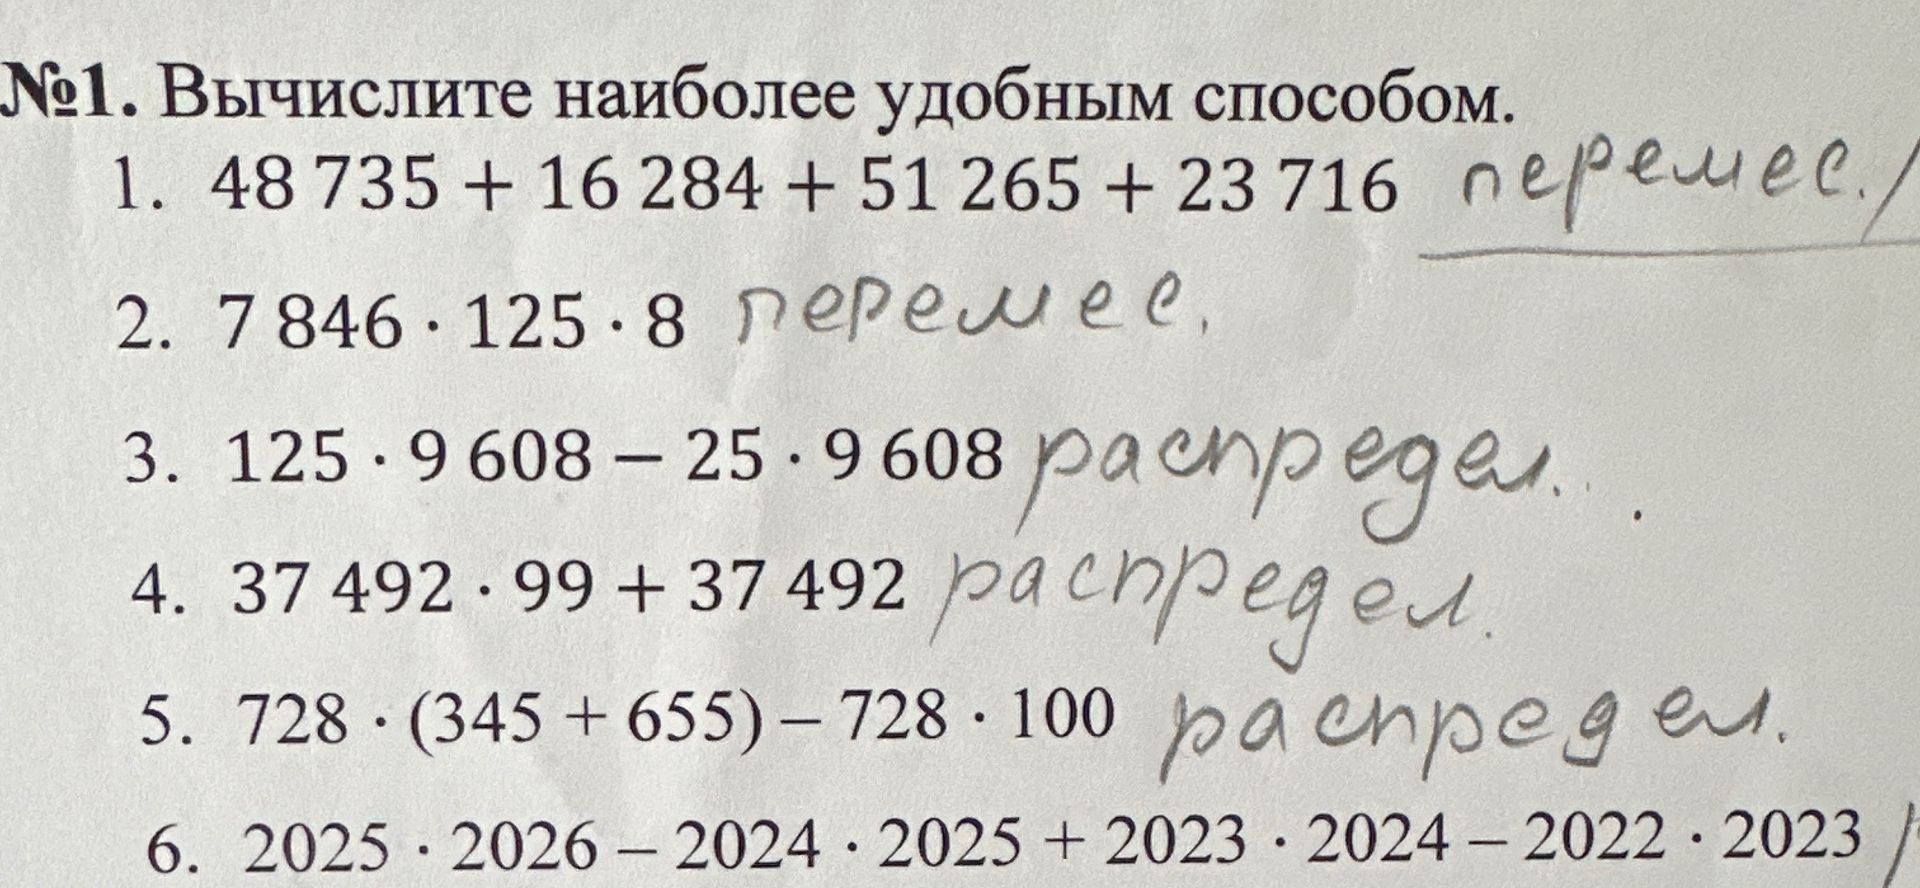 №1. Вычислите наиболее удобным способом.
1. 48 735 + 16 284 + 51 265 + 23 716 перемес./
2. 7 846 · 125 · 8 перемес.
3. 125 · 9 608 – 25 · 9 608 распредел.
4. 37 492 · 99 + 37 492 распредел.
5. 728 · (345 + 655) – 728 · 100 распредел.
6. 2025 · 2026 – 2024 · 2025 + 2023 · 2024 – 2022 · 2023